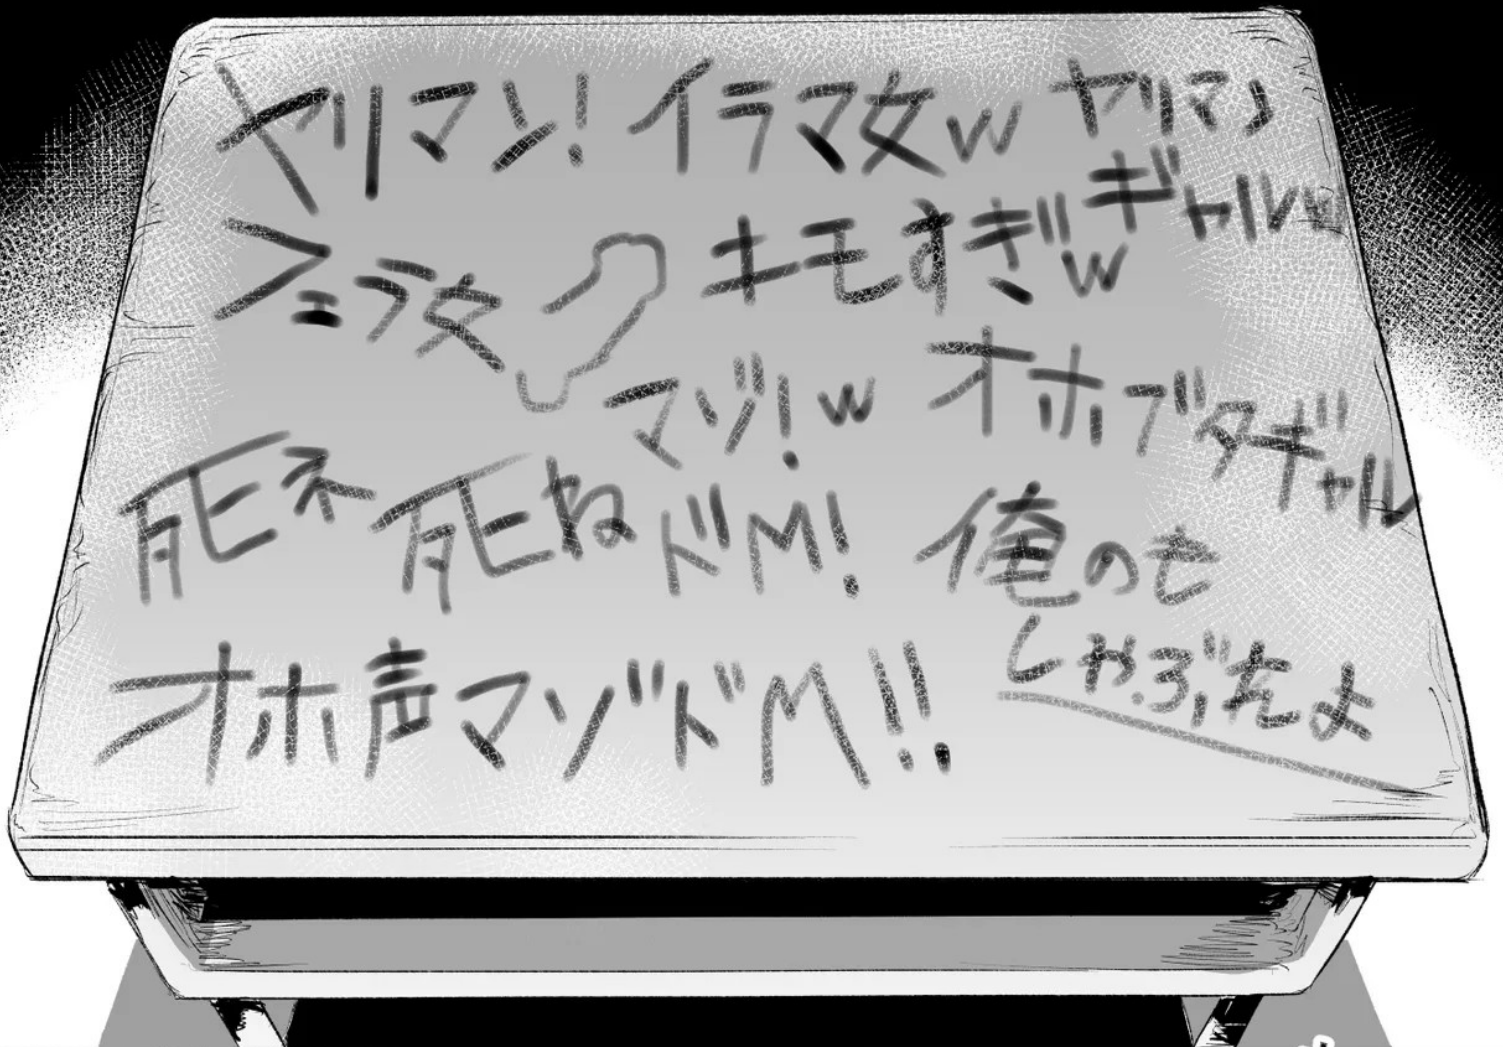 ヤリマン！ イラマ女w ヤリマン
ギャルw
フェラ女 キモすぎw
マゾ！w オホブタギャル
死ネ 死ね ドM！ 俺のも
しゃぶれよ
オホ声マゾドM!!